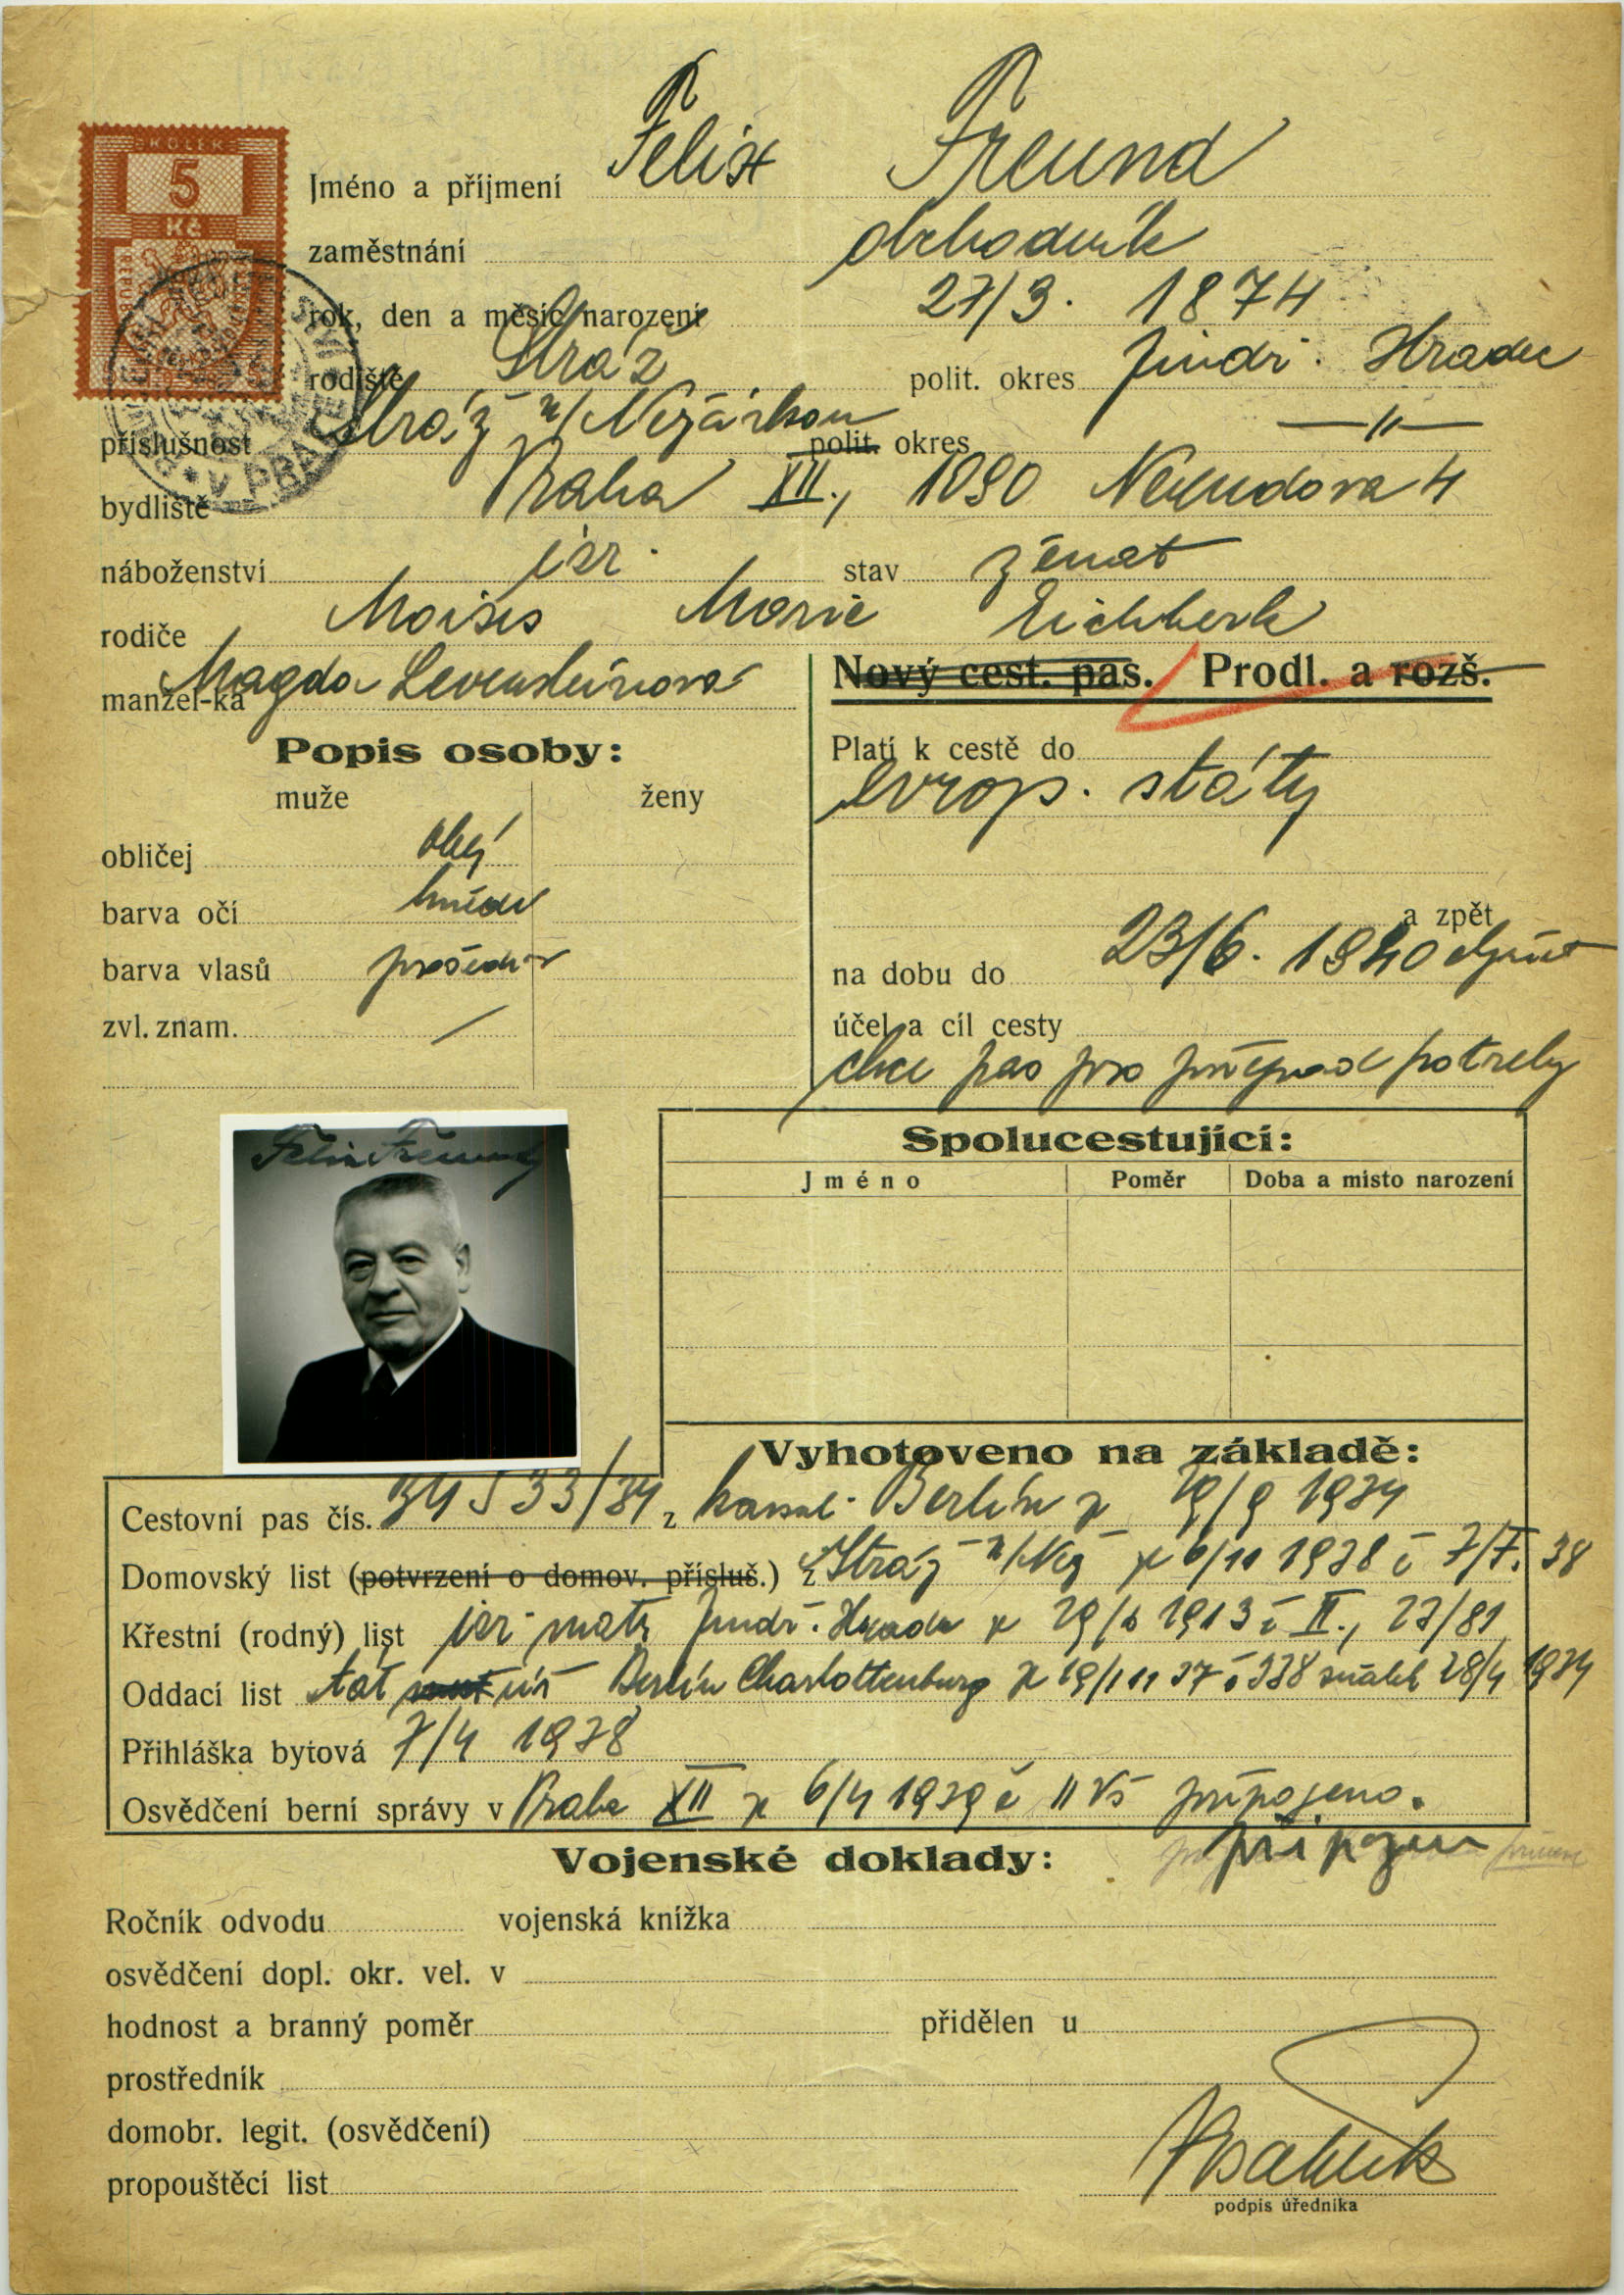 KOLEK
5
Kč
Jméno a příjmení Felix Freund
zaměstnání obchodník
rok, den a měsíc narození 27/3. 1874
rodiště Stráž polit. okres Jindř. Hradec
příslušnost Stráž n/Nežárkou polit. okres —〃—
bydliště Praha XII., 1090 Nerudova 4
V PRAZE
náboženství isr. stav ženat
rodiče Moises Marie Eichberk
manžel-ka Magda Levensteinova
Nový cest. pas. Prodl. a rozš.
Popis osoby:
muže ženy
obličej
barva očí hnědé
barva vlasů prošediv
zvl. znam. /
Platí k cestě do
evrop. státy
a zpět
na dobu do 23/6. 1940
účel a cíl cesty
chce pas pro případ potřeby
Felix Freund
Spolucestující:
Jméno Poměr Doba a místo narození
Vyhotoveno na základě:
Cestovní pas čís. 34533/34 z konsul. Berlín z 19/9 1934
Domovský list (potvrzení o domov. přísluš.) z Stráž n/Než z 6/10 1938 č 7/I. 38
Křestní (rodný) list isr. matr Jindř. Hradec z 29/6 1913 č II., 27/81
Oddací list Berlín Charlottenburg z 19/11 37 č 338 sňatek 28/4 1934
Přihláška bytová 7/4 1938
Osvědčení berní správy v Praha XII z 6/4 1939 č 11 připojeno.
Vojenské doklady:
Ročník odvodu vojenská knížka
osvědčení dopl. okr. vel. v
hodnost a branný poměr přidělen u
prostředník
domobr. legit. (osvědčení)
propouštěcí list
podpis úředníka